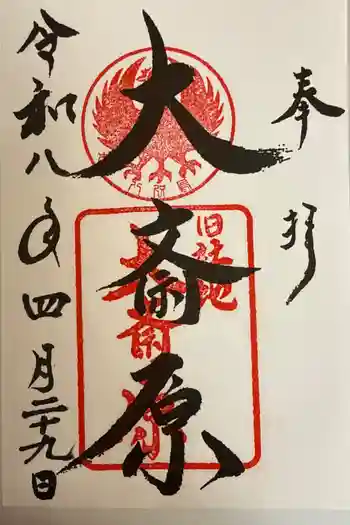 奉拝
大斎原
旧社地
大斎原
令和八年四月二十九日